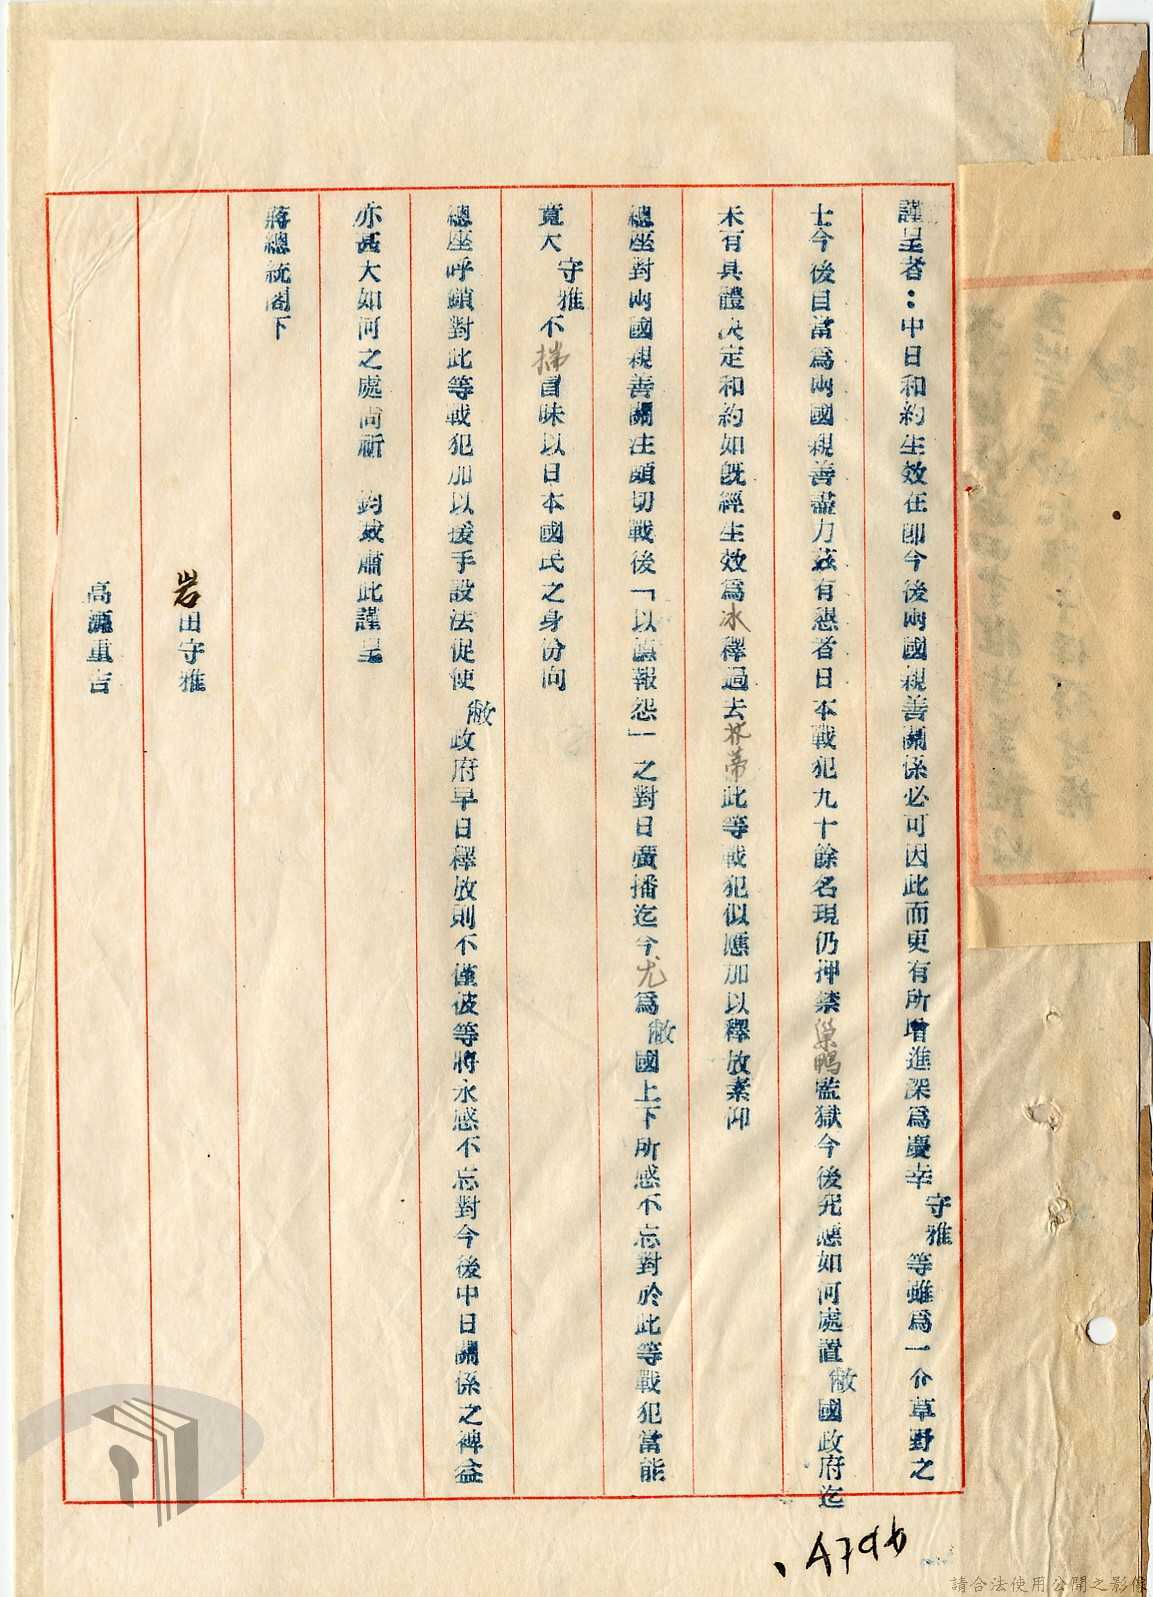 謹呈者：中日和約生效在卽今後兩國親善關係必可因此而更有所增進深爲慶幸守雅等雖爲一介草野之
士今後自當爲兩國親善盡力茲有懇者日本戰犯九十餘名現仍押禁巢鴨監獄今後究應如何處置敝國政府迄
未有具體決定和約如旣經生效爲冰釋過去芥蒂此等戰犯似應加以釋放素仰
總座對兩國親善關注頗切戰後「以德報怨」之對日廣播迄今尤爲敝國上下所感不忘對於此等戰犯當能
寬大守雅不揣冒昧以日本國民之身份向
總座呼籲對此等戰犯加以援手設法促使敝政府早日釋放則不僅彼等將永感不忘對今後中日關係之裨益
亦甚大如何之處尚祈 鈞裁肅此謹呈
蔣總統閣下
岩田守雅
高瀨重吉
A796
請合法使用公開之影像